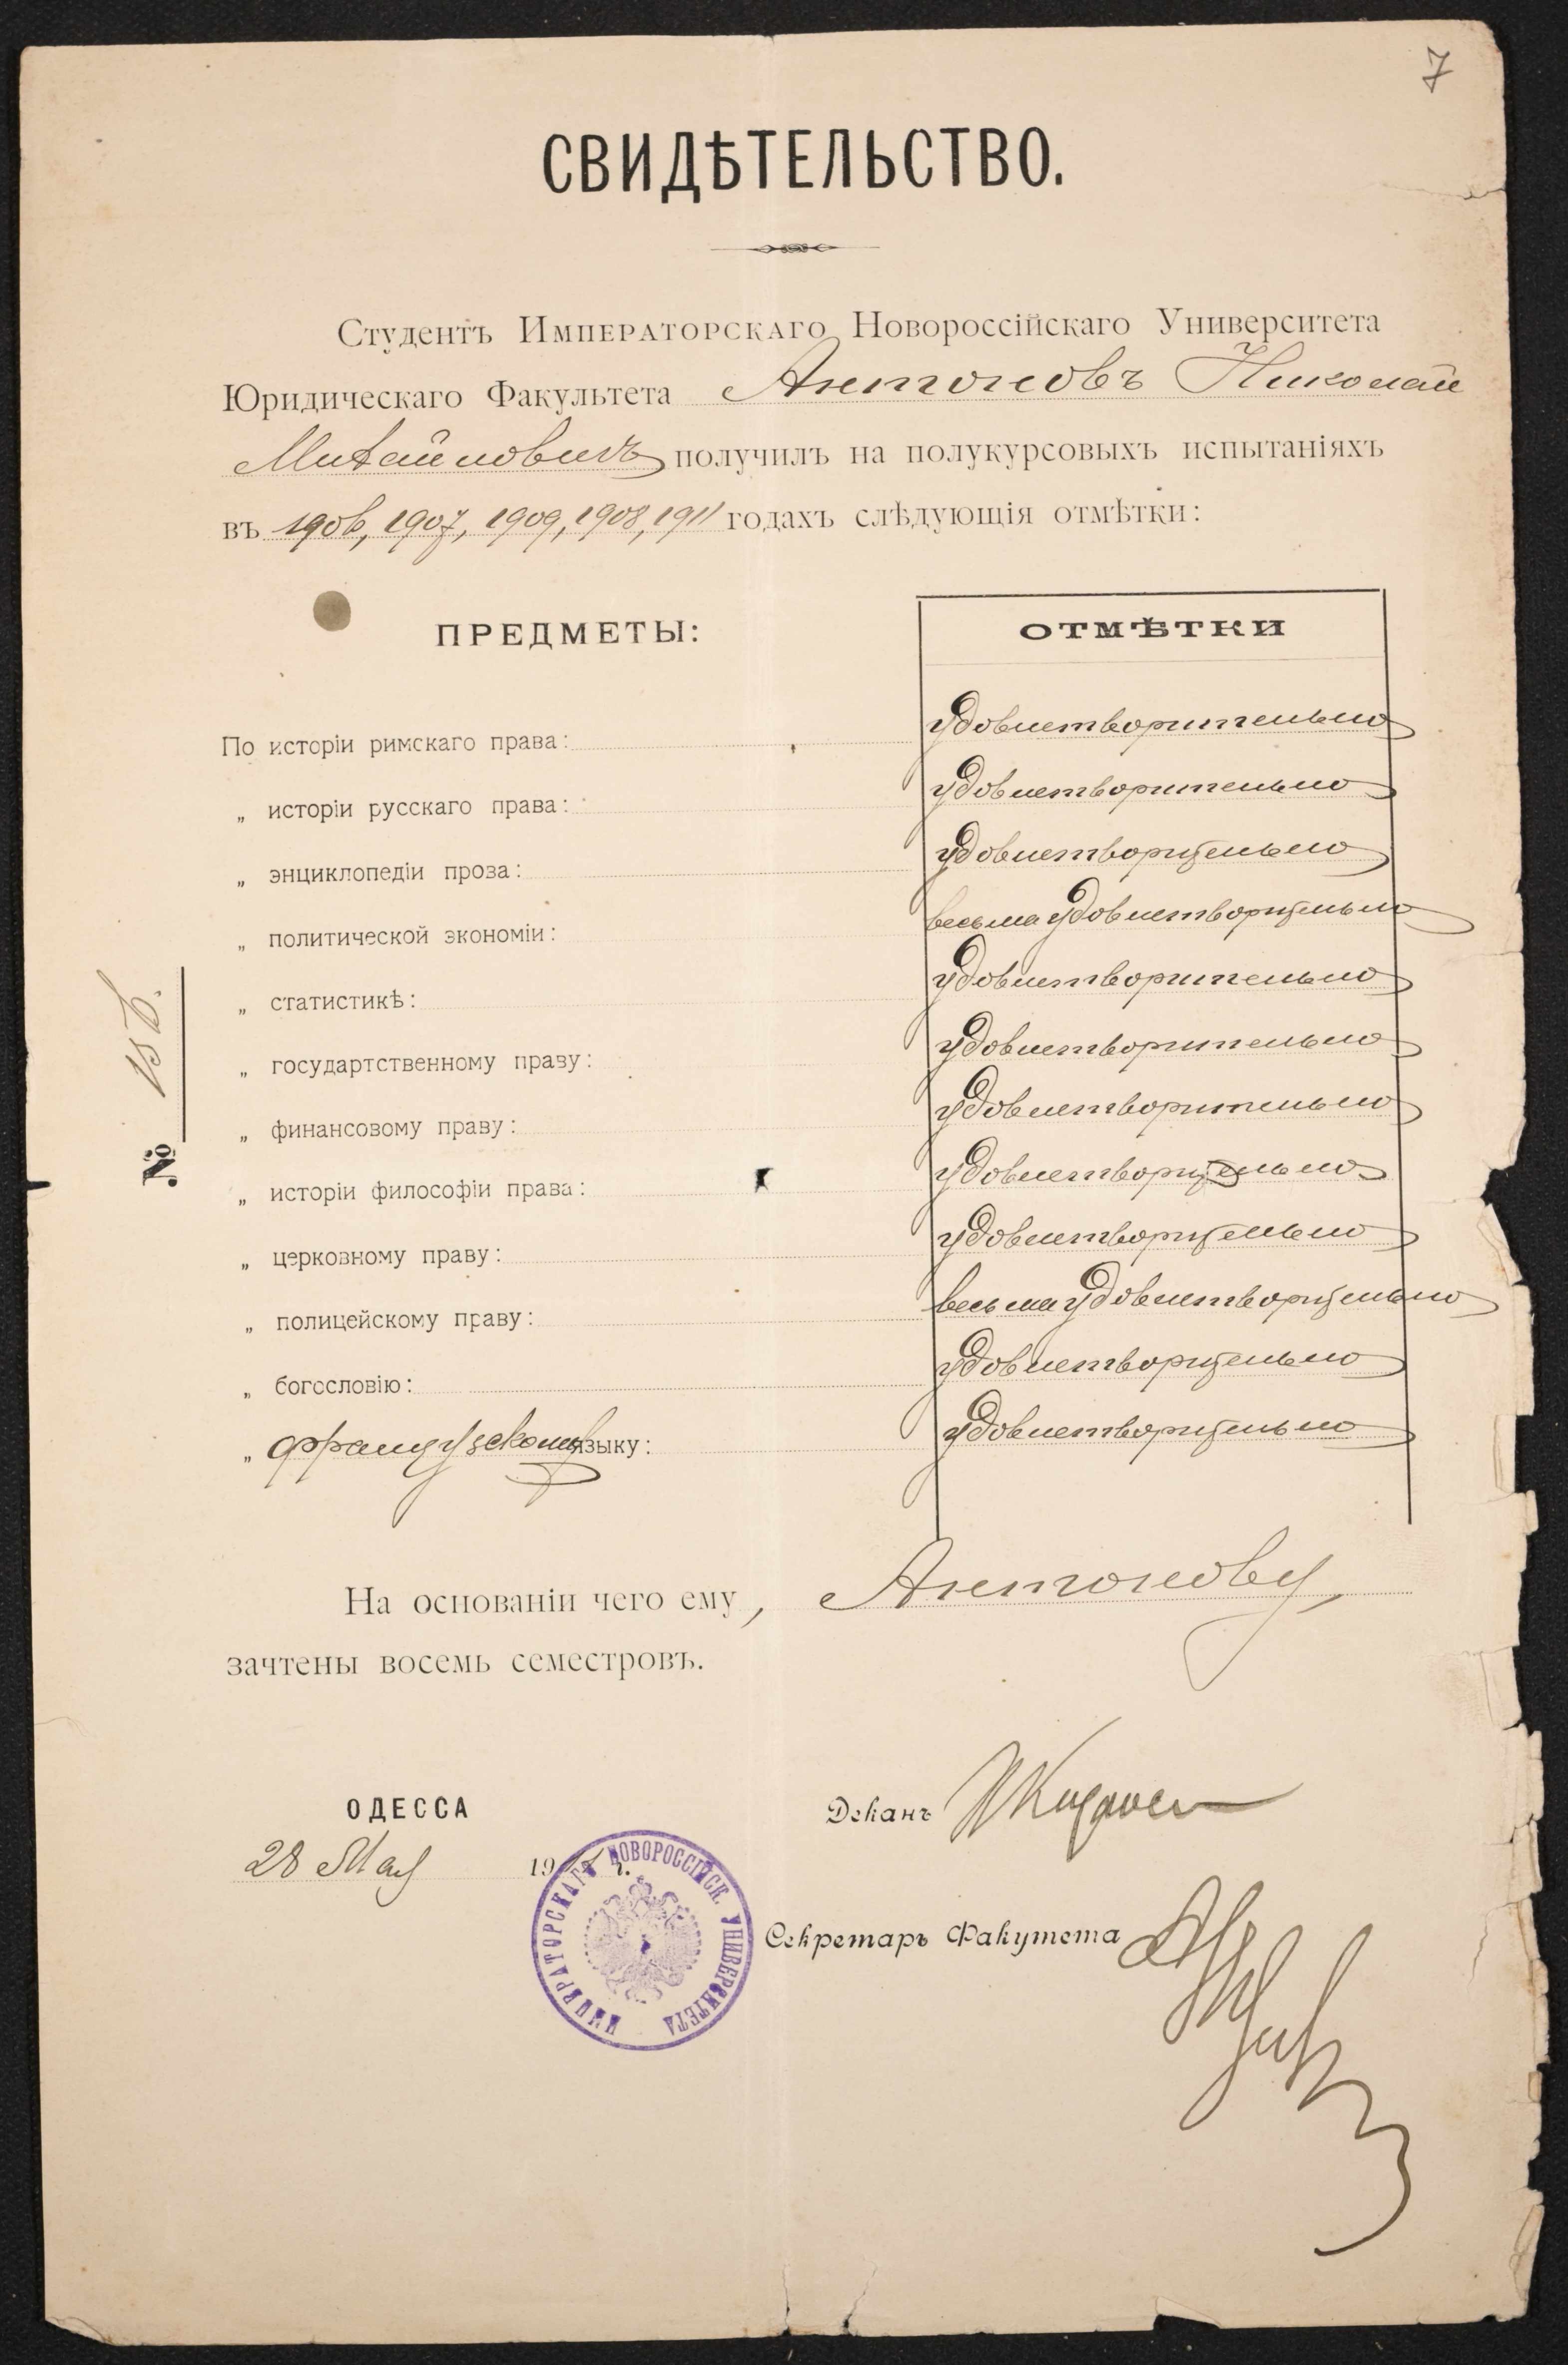 7
СВИДѢТЕЛЬСТВО.
Студентъ Императорскаго Новороссійскаго Университета
Юридическаго Факультета Антоновъ Николай
Михайловичъ получилъ на полукурсовыхъ испытаніяхъ
въ 1906, 1907, 1909, 1908, 1911 годахъ слѣдующія отмѣтки:
ПРЕДМЕТЫ: ОТМѢТКИ
По исторіи римскаго права: удовлетворительно
„ исторіи русскаго права: удовлетворительно
„ энциклопедіи проза: удовлетворительно
„ политической экономіи: весьма удовлетворительно
„ статистикѣ: удовлетворительно
„ государтственному праву: удовлетворительно
„ финансовому праву: удовлетворительно
„ исторіи философіи права: удовлетворительно
„ церковному праву: удовлетворительно
„ полицейскому праву: весьма удовлетворительно
„ богословію: удовлетворительно
„ французскому языку: удовлетворительно
№ 156.
На основаніи чего ему, Антонову,
зачтены восемь семестровъ.
ОДЕССА
Деканъ
28 Мая 19 г.
Секретарь Факутета
ИМПЕРАТОРСКАГО НОВОРОССІЙСК. УНИВЕРСИТЕТА